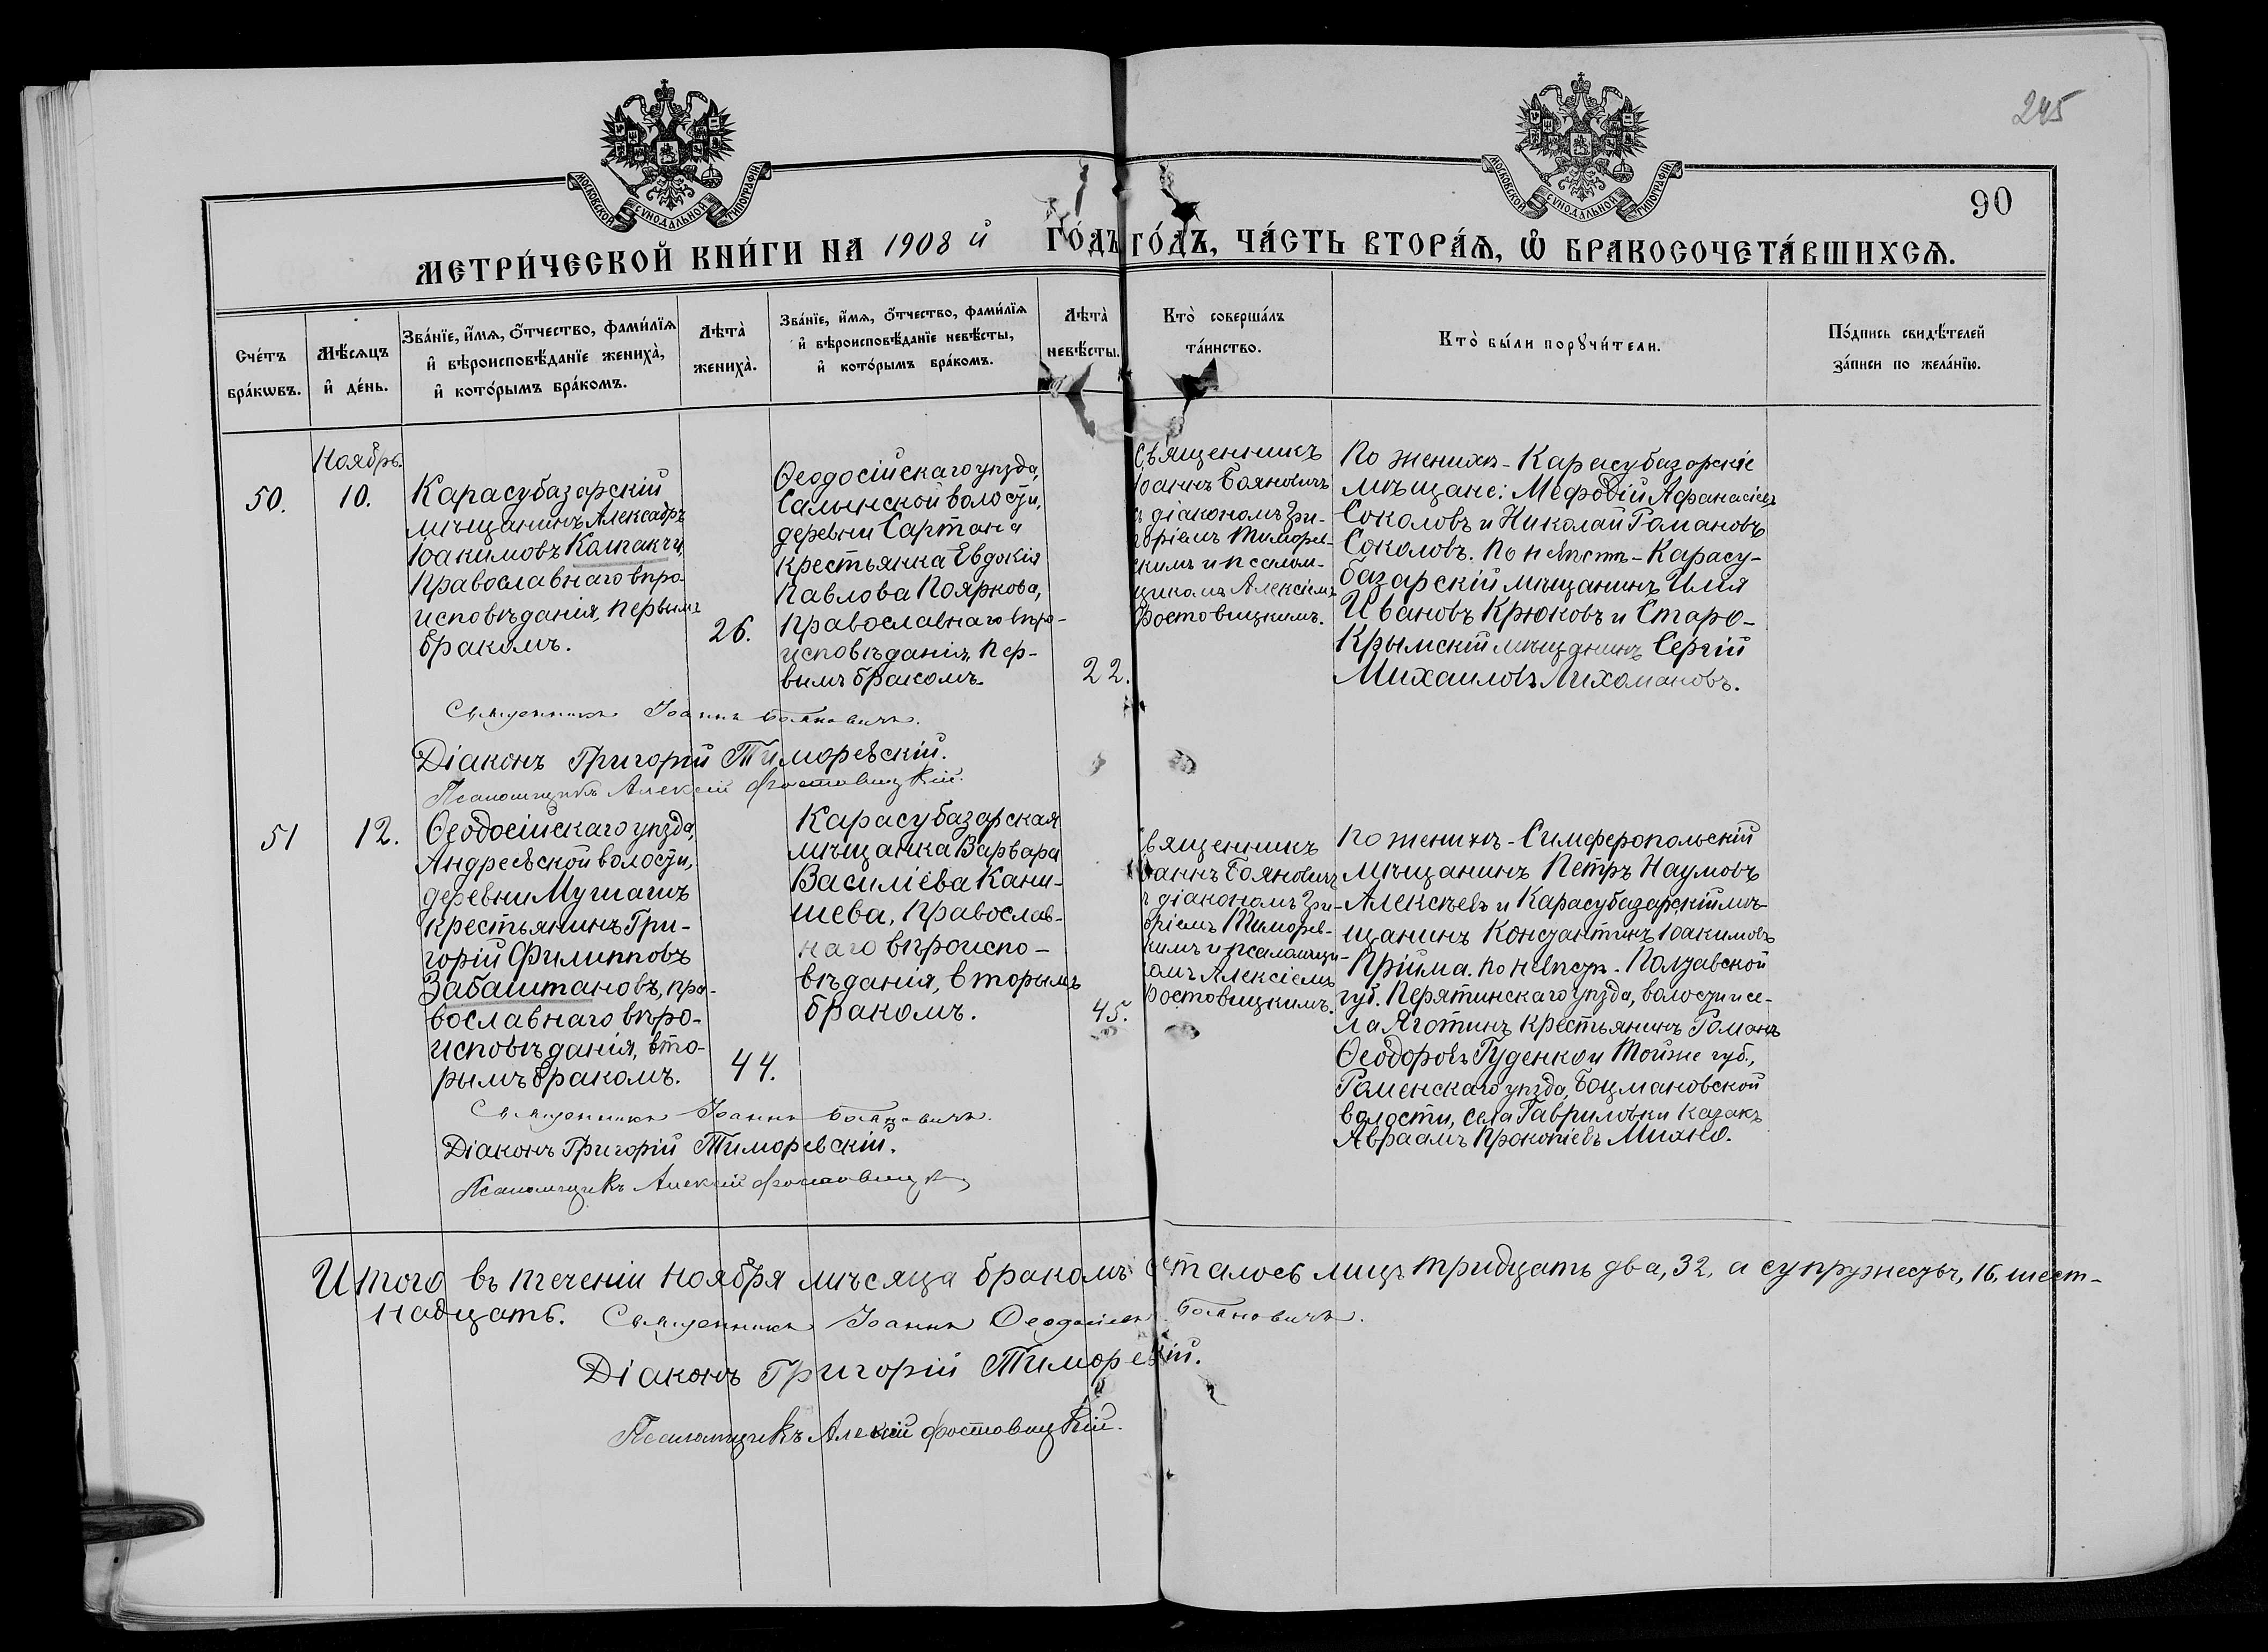 245
90
МОСКОВСКОЙ СѴНОДАЛЬНОЙ ТИПОГРАФІИ
МОСКОВСКОЙ СѴНОДАЛЬНОЙ ТИПОГРАФІИ
МЕТРИ́ЧЕСКОЙ КНИ́ГИ НА 1908 й ГО́ДЪ
ГО́ДЪ, ЧА́СТЬ ВТОРА́Ѧ, Ѽ БРАКОСОЧЕТА́ВШИХСѦ.
Сче́тъ
бра́кѡвъ.
Мѣ́сѧцъ
и҆ де́нь.
Зва́нїе, и҆́мѧ, ѻ҆́тчество, фами́лїѧ
и҆ вѣроисповѣ́данїе жениха̀,
и҆ кото́рымъ бра́комъ.
Лѣта̀
жениха̀.
Зва́нїе, и҆́мѧ, ѻ҆́тчество, фами́лїѧ
и҆ вѣроисповѣ́данїе невѣ́сты,
и҆ кото́рымъ бра́комъ.
Лѣта̀
невѣ́сты.
Кто̀ соверша́лъ
та́инство.
Кто̀ бы́ли порꙋчи́тели.
По́дпись свидѣ́телей
за́писи по жела́нїю.
Ноябрь.
50.
10.
Карасубазарскій
мѣщанинъ Алексадръ
Іоакимовъ Колпакчи,
Православнаго вѣро-
исповѣданія, первымъ
бракомъ.
26.
Ѳеодосійскаго уѣзда,
Салынской волости,
деревни Сартана
крестьянка Евдокія
Павлова Пояркова,
православнаго вѣро-
исповѣданія, пер-
вымъ бракомъ.
22.
Священникъ
Іоаннъ Бояновичъ
съ діакономъ Гри-
горіемъ Тиморев-
скимъ и псалом-
щикомъ Алексіемъ
Фостовицкимъ.
По женихѣ - Карасубазарскіе
мѣщане: Меѳодій Афанасіевъ
Соколовъ и Николай Романовъ
Соколовъ. По невѣстѣ - Карасу-
базарскій мѣщанинъ Илія
Ивановъ Крюковъ и Старо-
Крымскій мѣщанинъ Сергій
Михаиловъ Лихомановъ.
Священникъ Іоаннъ Бояновичъ.
Діаконъ Григорій Тиморевскій.
Псаломщикъ Алексій Фостовицкій.
51
12.
Ѳеодосійскаго уѣзда,
Андреевской волости,
деревни Мушашъ
крестьянинъ Гри-
горій Филипповъ
Забаштановъ, пра-
вославнаго вѣро-
исповѣданія, вто-
рымъ бракомъ.
44.
Карасубазарская
мѣщанка Варвара
Василіева Кани-
шева, православ-
наго вѣроиспо-
вѣданія, вторымъ
бракомъ.
45.
Священникъ
Іоаннъ Бояновичъ
съ діакономъ Гри-
горіемъ Тиморев-
скимъ и псаломщи-
комъ Алексіемъ
Фостовицкимъ.
По женихѣ - Симферопольскій
мѣщанинъ Петръ Наумовъ
Алексѣевъ и Карасубазарскій мѣ-
щанинъ Константинъ Іоакимовъ
Пріима. По невѣстѣ - Полтавской
губ. Перятинскаго уѣзда, волости и се-
ла Яготинъ крестьянинъ Романъ
Ѳеодоровъ Гуденко и Той же губ.,
Роменскаго уѣзда, Боцмановской
волости, села Гавриловки казакъ
Авраамъ Прокопіевъ Михно.
Священникъ Іоаннъ Бояновичъ.
Діаконъ Григорій Тиморевскій.
Псаломщикъ Алексій Фостовицкій
Итого въ теченіи ноября мѣсяца бракомъ осталось лицъ тридцать два, 32, а супружествъ, 16, шест-
надцать. Священникъ Іоаннъ Ѳеодосіевъ Бояновичъ.
Діаконъ Григорій Тиморевскій.
Псаломщикъ Алексій Фостовицкій.